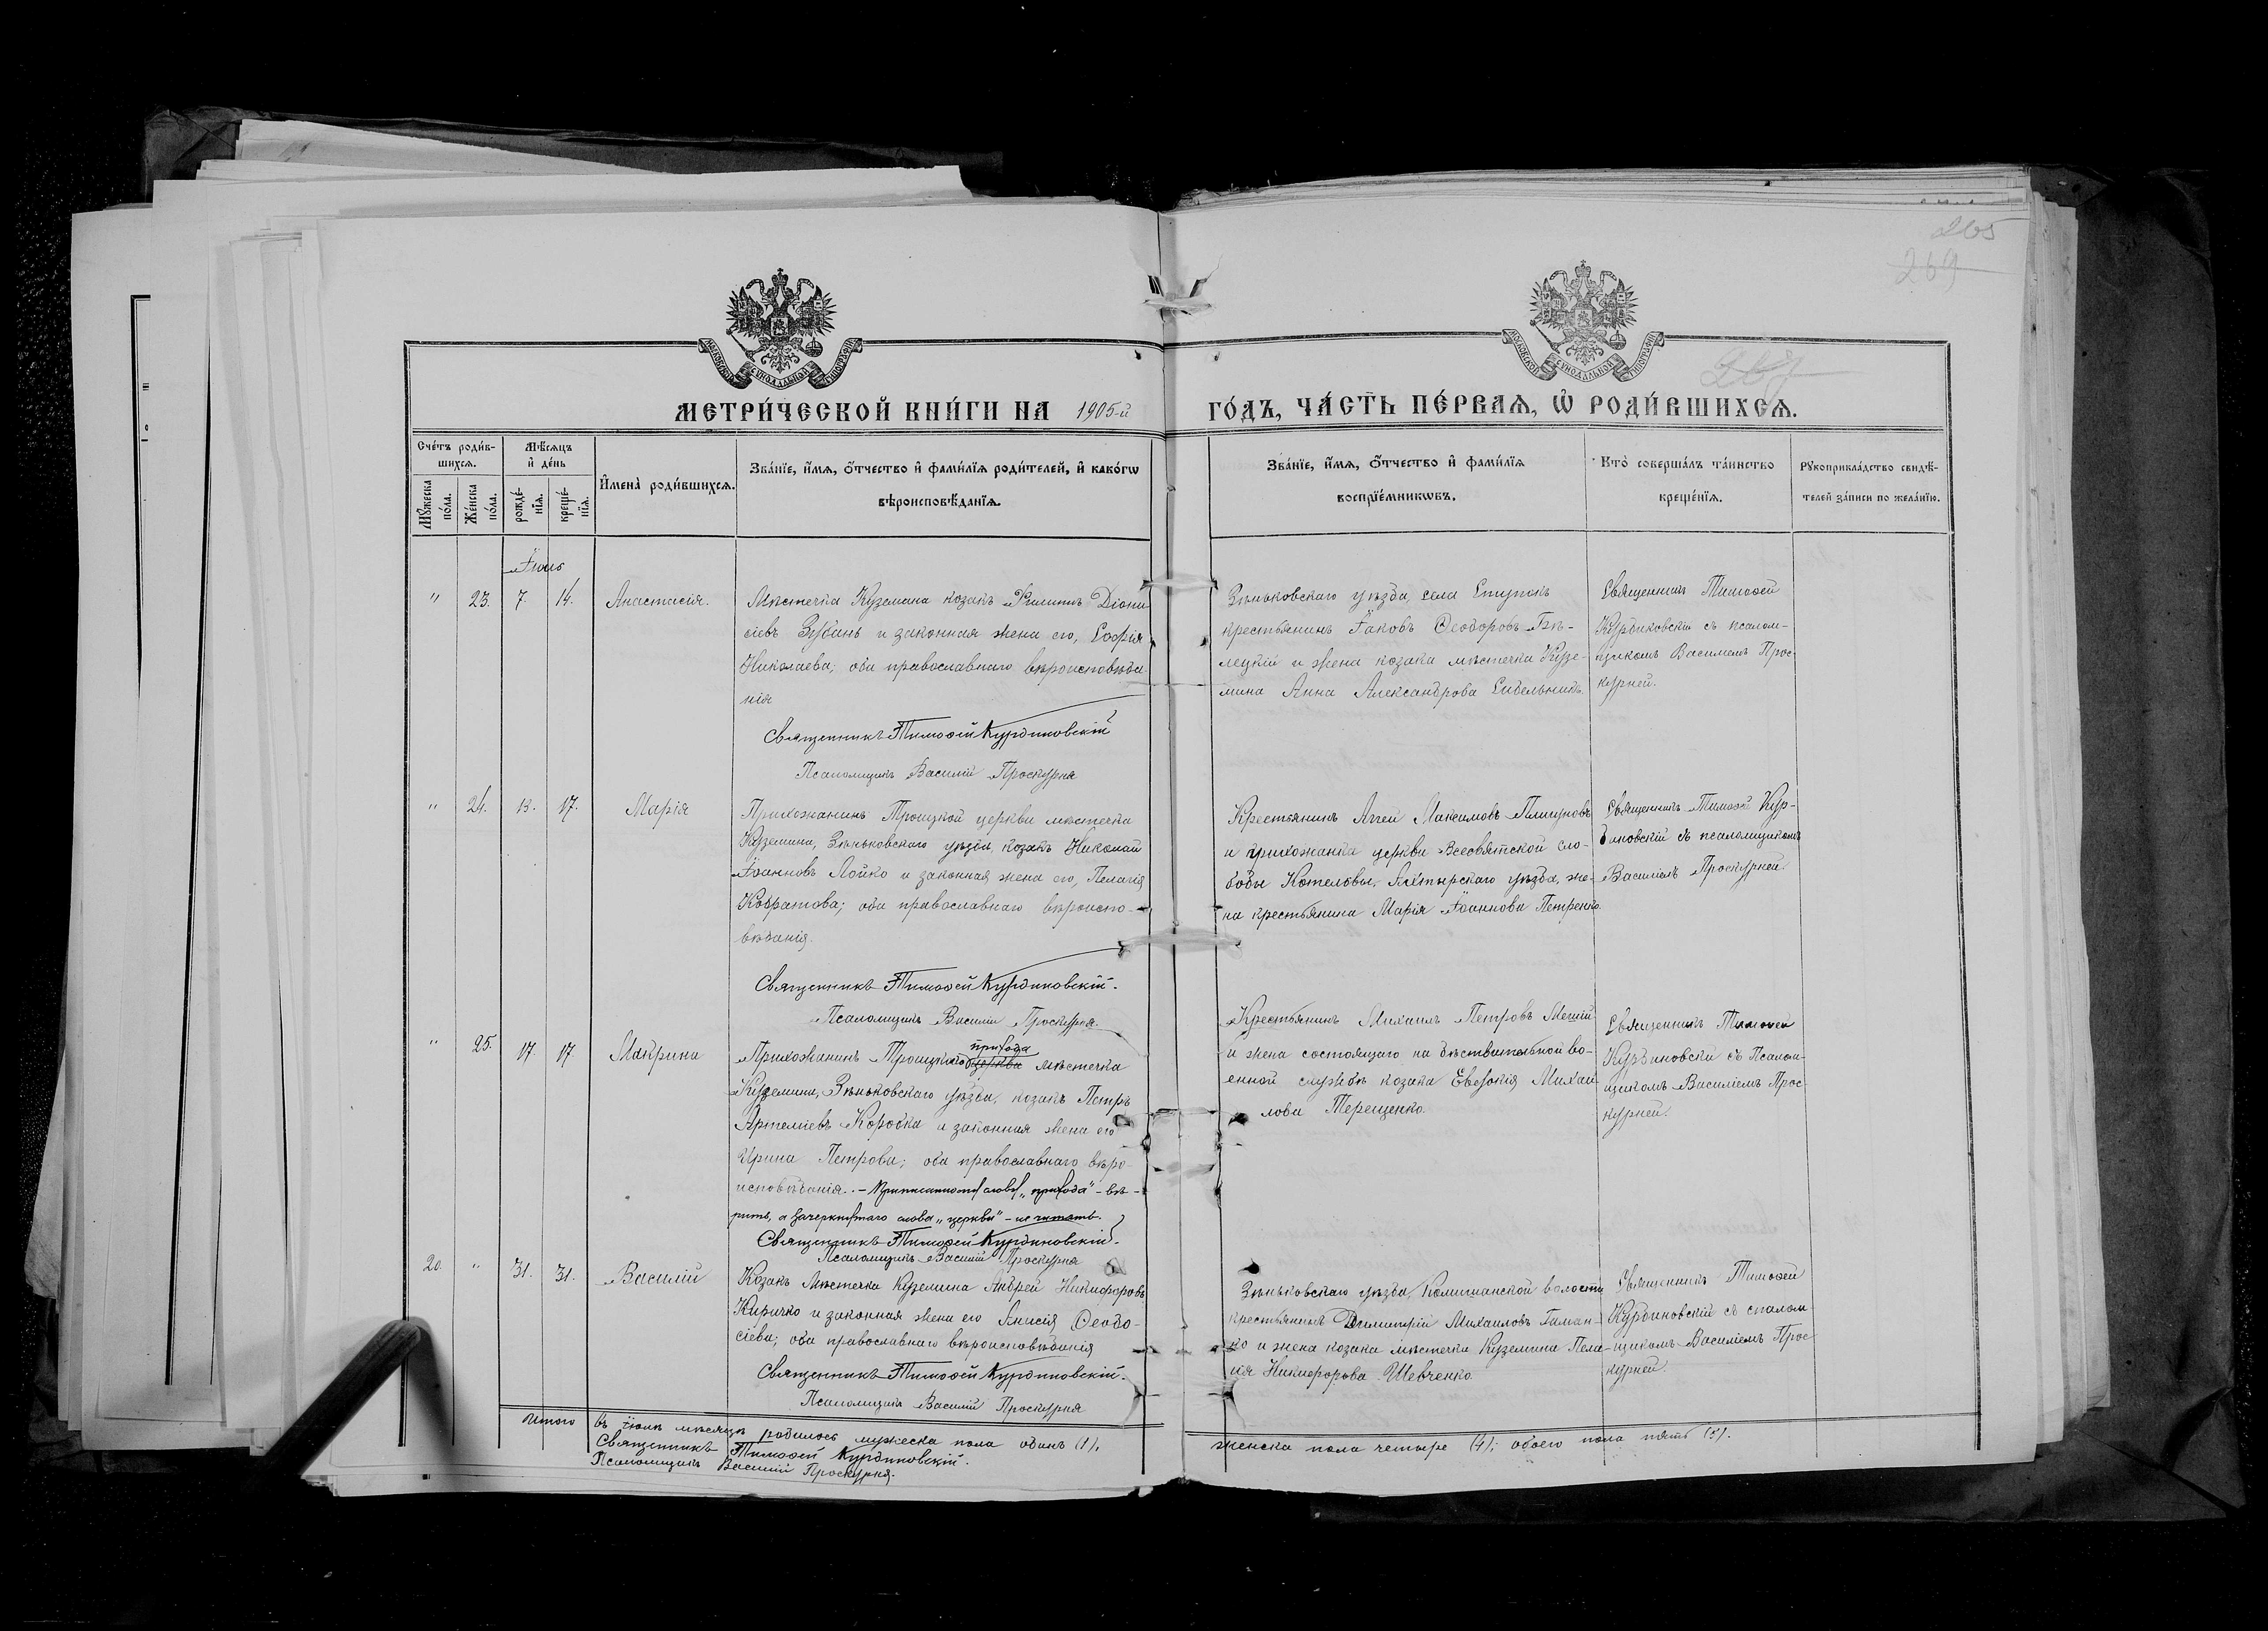 265
269
267
МОСКОВСКОЙ СѴНОДАЛЬНОЙ ТИПОГРАФІИ
МОСКОВСКОЙ СѴНОДАЛЬНОЙ ТИПОГРАФІИ
МЕТРИ́ЧЕСКОЙ КНИ́ГИ НА 1905-й ГО́ДЪ, ЧА́СТЬ ПЕ́РВАЯ, Ѡ҆ РОДИ́ВШИХСЯ.
Сче́тъ роди́в-
шихся.
Мꙋ́жеска по́ла.
Же́нска по́ла.
Мѣ́сяцъ и҆ де́нь
рожде́-
нїя.
креще́-
нїя.
И҆мена̀ роди́вшихся.
Зва́нїе, и҆́мя, ѻ҆́тчество и҆ фами́лїя роди́телей, и҆ како́гѡ
вѣроисповѣ́данїя.
Зва́нїе, и҆́мя, ѻ҆́тчество и҆ фами́лїя
воспрїе́мникѡвъ.
Кто̀ соверша́лъ та́инство
креще́нїя.
Рꙋкоприкла́дство свидѣ́-
телей за́писи по жела́нїю.
Іюль
" 23. 7. 14. Анастасія.
Мѣстечка Куземина козакъ Филиппъ Діони
сіевъ Зубань и законная жена его, Софія
Николаева; оба православнаго вѣроисповѣда
нія
Священникъ Тимофей Курдиновскій
Псаломщикъ Василій Проскурня
Зѣньковскаго уѣзда, села Ступокъ
крестьянинъ Іаковъ Ѳеодоровъ Бѣ-
лецкій и жена козака мѣстечка Кузе-
мина Анна Александрова Сидельникъ.
Священникъ Тимоѳей
Курдиновскій съ псалом-
щикомъ Василіемъ Прос-
курней.
" 24. 13. 17. Марія
Прихожанинъ Троицкой церкви мѣстечка
Куземина, Зѣньковскаго уѣзда, козакъ Николай
Іоанновъ Лойко и законная жена его, Пелагія
Кодратова; оба православнаго вѣроиспо-
вѣданія.
Священникъ Тимоѳей Курдиновскій.
Псаломщикъ Василій Проскурня.
Крестьянинъ Аггей Максимовъ
и прихожанка церкви Всесвятской сло-
боды Котельвы, Ахтырскаго уѣзда, же-
на крестьянина Марія Іоаннова Петренко.
Священникъ Тимоѳей Кур-
диновскій съ псаломщикомъ
Василіемъ Проскурней.
" 25. 17. 17 Макрина
прихода
Прихожанинъ Троицкаго церкви мѣстечка
Куземина, Зѣньковскаго уѣзда, козакъ Петръ
Артеміевъ Коробка и законная жена его
Ирина Петрова; оба православнаго вѣро-
исповѣданія. - Приписанному слову „прихода" - вѣ-
рить, а зачеркнутаго слова „церкви" - не читать.
Священникъ Тимоѳей Курдиновскій.
Псаломщикъ Василій Проскурня
Крестьянинъ Михаилъ Петровъ
и жена состоящаго на дѣйствительной во-
енной службѣ козака Евдокія Михаи
лова Терещенко.
Священникъ Тимоѳей
Курдиновскій съ Псалом-
щикомъ Василіемъ Прос-
курней.
20. " 31. 31. Василій
Козакъ Мѣстечка Куземина Андрей Никифоровъ
Киричко и законная жена его Анисія Ѳеодо-
сіева; оба православнаго вѣроисповѣданія
Священникъ Тимоѳей Курдиновскій.
Псаломщикъ Василій Проскурня
Зѣньковскаго уѣзда, Комишанской волости
крестьянинъ Димитрій Михаиловъ Гаман-
ко и жена козака мѣстечка Куземина Пела-
гія Никифорова Шевченко.
Священникъ Тимоѳей
Курдиновскій съ спалом
щикомъ Василіемъ Прос
курней.
Итого въ Іюлѣ мѣсяцѣ родилось мужеска пола одинъ (1), женска пола четыре (4); обоего пола пять (5).
Священникъ Тимоѳей Курдиновскій.
Псаломщикъ Василій Проскурня.